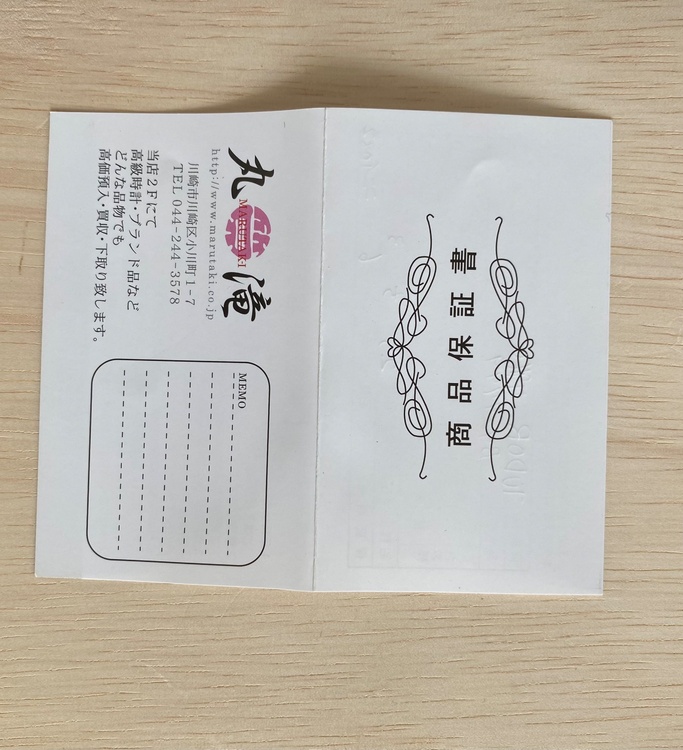 商品保証書
丸滝
MARUTAKI
http://www.marutaki.co.jp
川崎市川崎区小川町1-7
TEL 044-244-3578
当店2Fにて
高級時計・ブランド品など
どんな品物でも
高価預入・買収・下取り致します。
MEMO